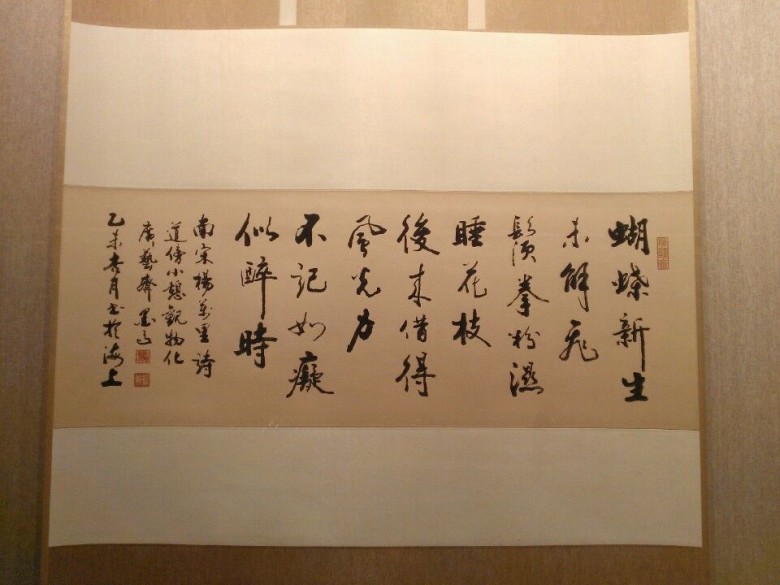 蝴蝶新生
未解飛
鬚拳粉濕
睡花枝
後來借得
風光力
不記如癡
似醉時
南宋楊萬里詩
道傍小憩觀物化
廣藝齋
乙未杏月书於海上